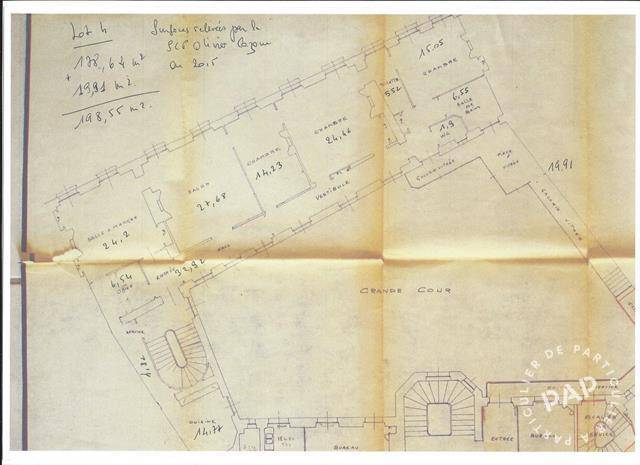 Lot 4
178,64 m²
+ 19,91 m2.
198,55 m2.
Surfaces relevées par la
SCP Olivier
en 2015
15.05
CHAMBRE
5.52
6,55
SALLE
DE
BAIN
1,9
WC
CHAMBRE
24,46
CHAMBRE
14,23
SALON
27,68
VESTIBULE
GALERIE VITRÉE
19,91
GALERIE VITRÉE
SALLE A MANGER
24,2
HALL
ENTRÉE
32,92
6,54
OFFICE
GRANDE COUR
SERVICE
CUISINE
14,77
BUREAU
ENTRÉE
BUREAU
ESCALIER
SERVICE
DE PARTICULIER
A PARTICULIER
PAP